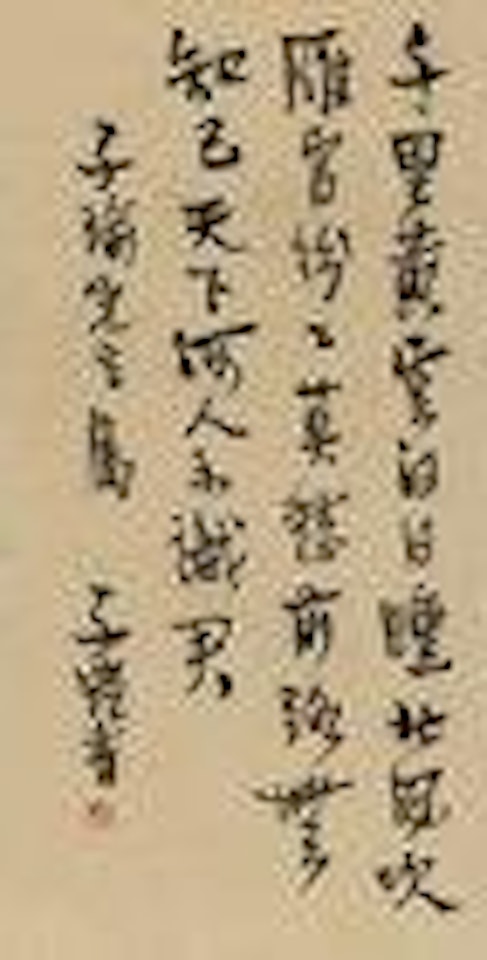 千里黃雲白日曛北風吹
雁雪紛々莫愁前路無
知己天下何人不識君
子瑜先生屬 子愷書